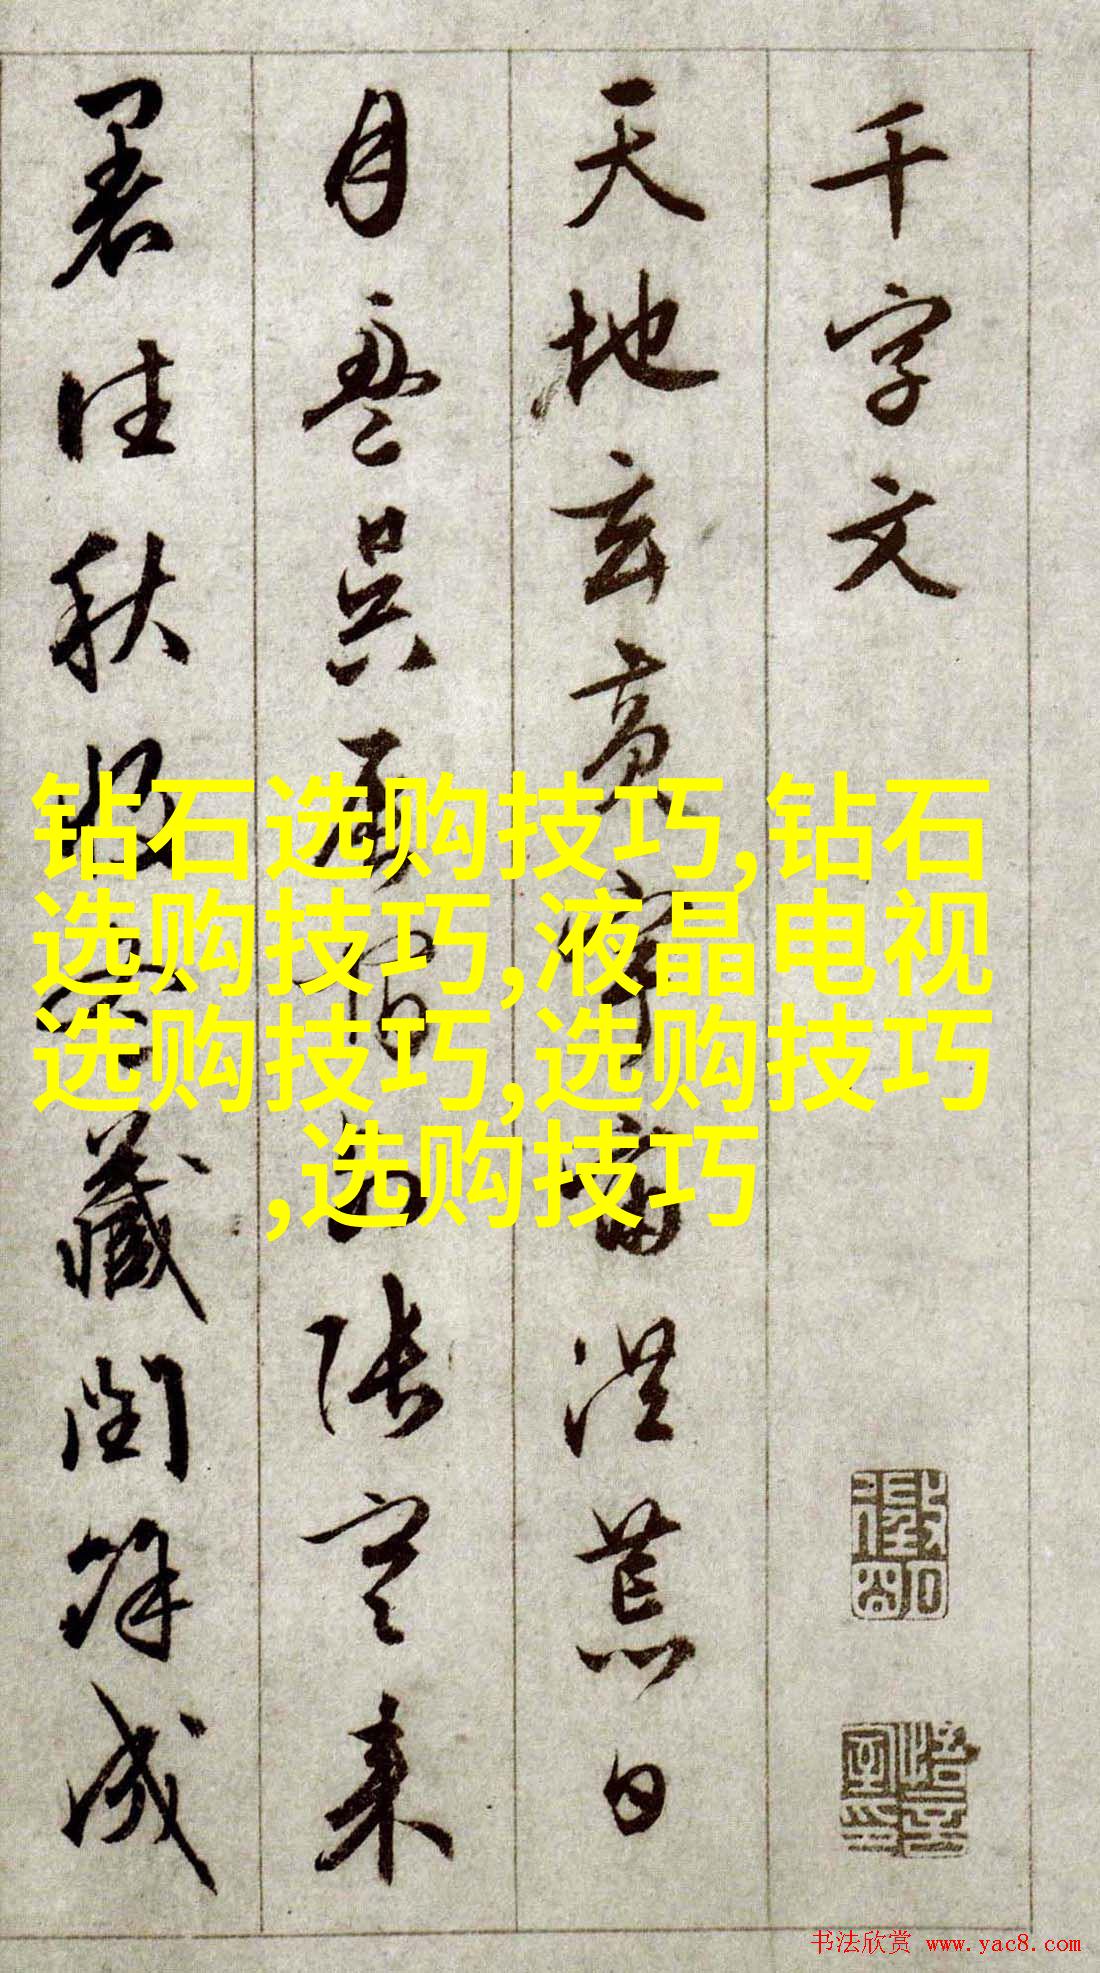 千字文
天地玄黃宇宙洪荒日
月盈昃辰宿列張寒來
暑往秋收冬藏閏餘成
钻石选购技巧,钻石
选购技巧,液晶电视
选购技巧,选购技巧
,选购技巧
书法欣赏 www.yac8.com